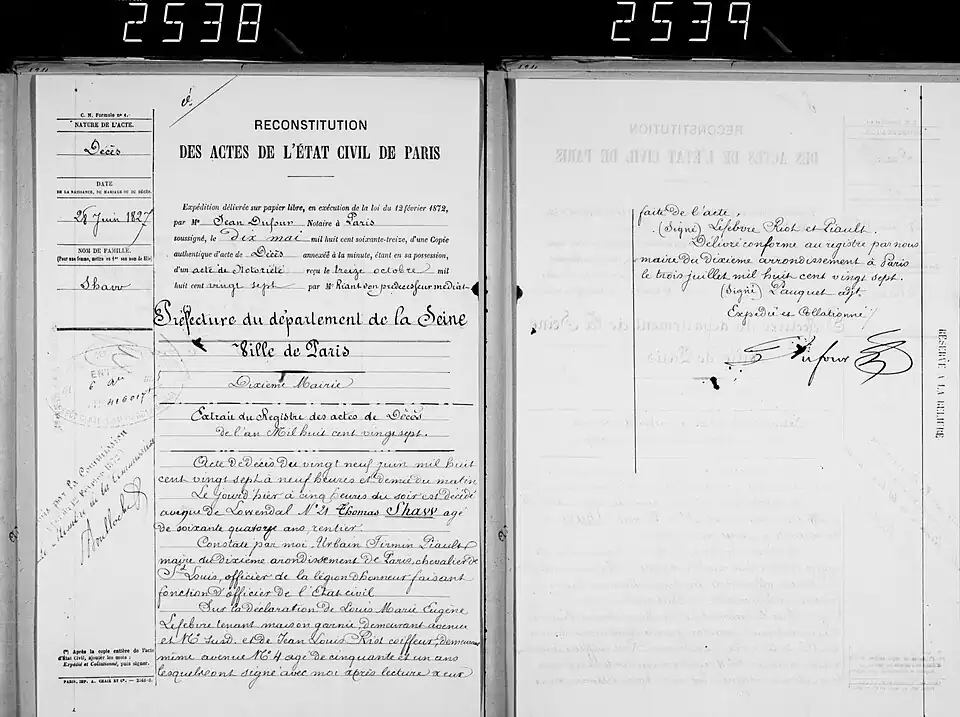 2538
C. N. Formule nº 4.
NATURE DE L'ACTE.
Décès
DATE
DE LA NAISSANCE, DU MARIAGE OU DU DÉCÈS.
28 Juin 1827
NOM DE FAMILLE.
(Pour une femme, mettre en 1er son nom de fille)
Shaw
RECONSTITUTION
DES ACTES DE L'ÉTAT CIVIL DE PARIS
Expédition délivrée sur papier libre, en exécution de la loi du 12 février 1872,
par Me Jean Dufour Notaire à Paris
soussigné, le dix mai mil huit cent soixante-treize, d'une Copie
authentique d'acte de Décès annexée à la minute, étant en sa possession,
d'un acte de Notoriété reçu le treize octobre mil
huit cent vingt sept par Me Riant son predecesseur mediat
Préfecture du département de la Seine
Ville de Paris
Dixième Mairie
Extrait du Registre des actes de Décès
de l'an Mil huit cent vingt sept.
Acte de décès du vingt neuf juin mil huit
cent vingt sept à neuf heures et demie du matin
Le jourd'hier à cinq heures du soir est décédé
avenue de Lowendal Nº 21 Thomas Shaw agé
de soixante quatorze ans rentier.
Constaté par moi Urbain Firmin Piault
maire du dixième arondissement de Paris, chevalier de
St Louis, officier de la légion d'honneur faisant
fonction d'officier de l'Etat civil
Sur la déclaration de Louis Marie Eugène
Lefebvre tenant maison garnie, demeurant avenue
et Nº susd. et de Jean Louis Riot coiffeur, demeurant
même avenue Nº 4 agé de cinquante et un ans
lesquels ont signé avec moi après lecture à eux
(*) Après la copie entière de l'acte
d'État Civil, ajouter les mots :
Expédié et Collationné, puis signer.
PARIS, IMP. A. CHAIX ET Cie.
2539
faite de l'acte.
(Signé) Lefebvre Riot et Piault.
Délivré conforme au registre par nous
maire du Dixième arrondissement à Paris
le trois juillet mil huit cent vingt sept.
(Signé) Pauquet adjt.
Expédié et Collationné
Dufour
RÉSERVÉ A LA RELIURE